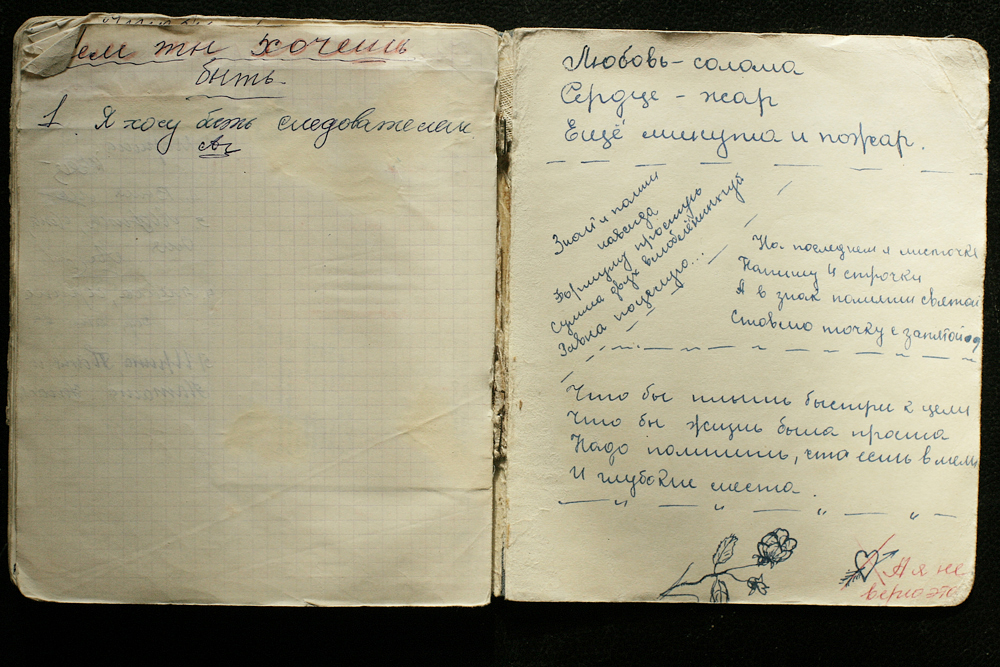 ем ты хочешь
быть
1. Я хочу быть следователем
Любовь-солома
Сердце - жар
Ещё минута и пожар.
Знай и помни
навсегда
Формулу простую
Сумма двух влюблённых
Равна поцелую...
На последнем я листочке
Напишу 4 строчки
А в знак памяти святой
Ставлю точку с запятой ;
Что бы плыть быстрей к цели
Что бы жизнь была проста
Надо помнить, что есть в мели
И глубокие места.
А я не
верю эт